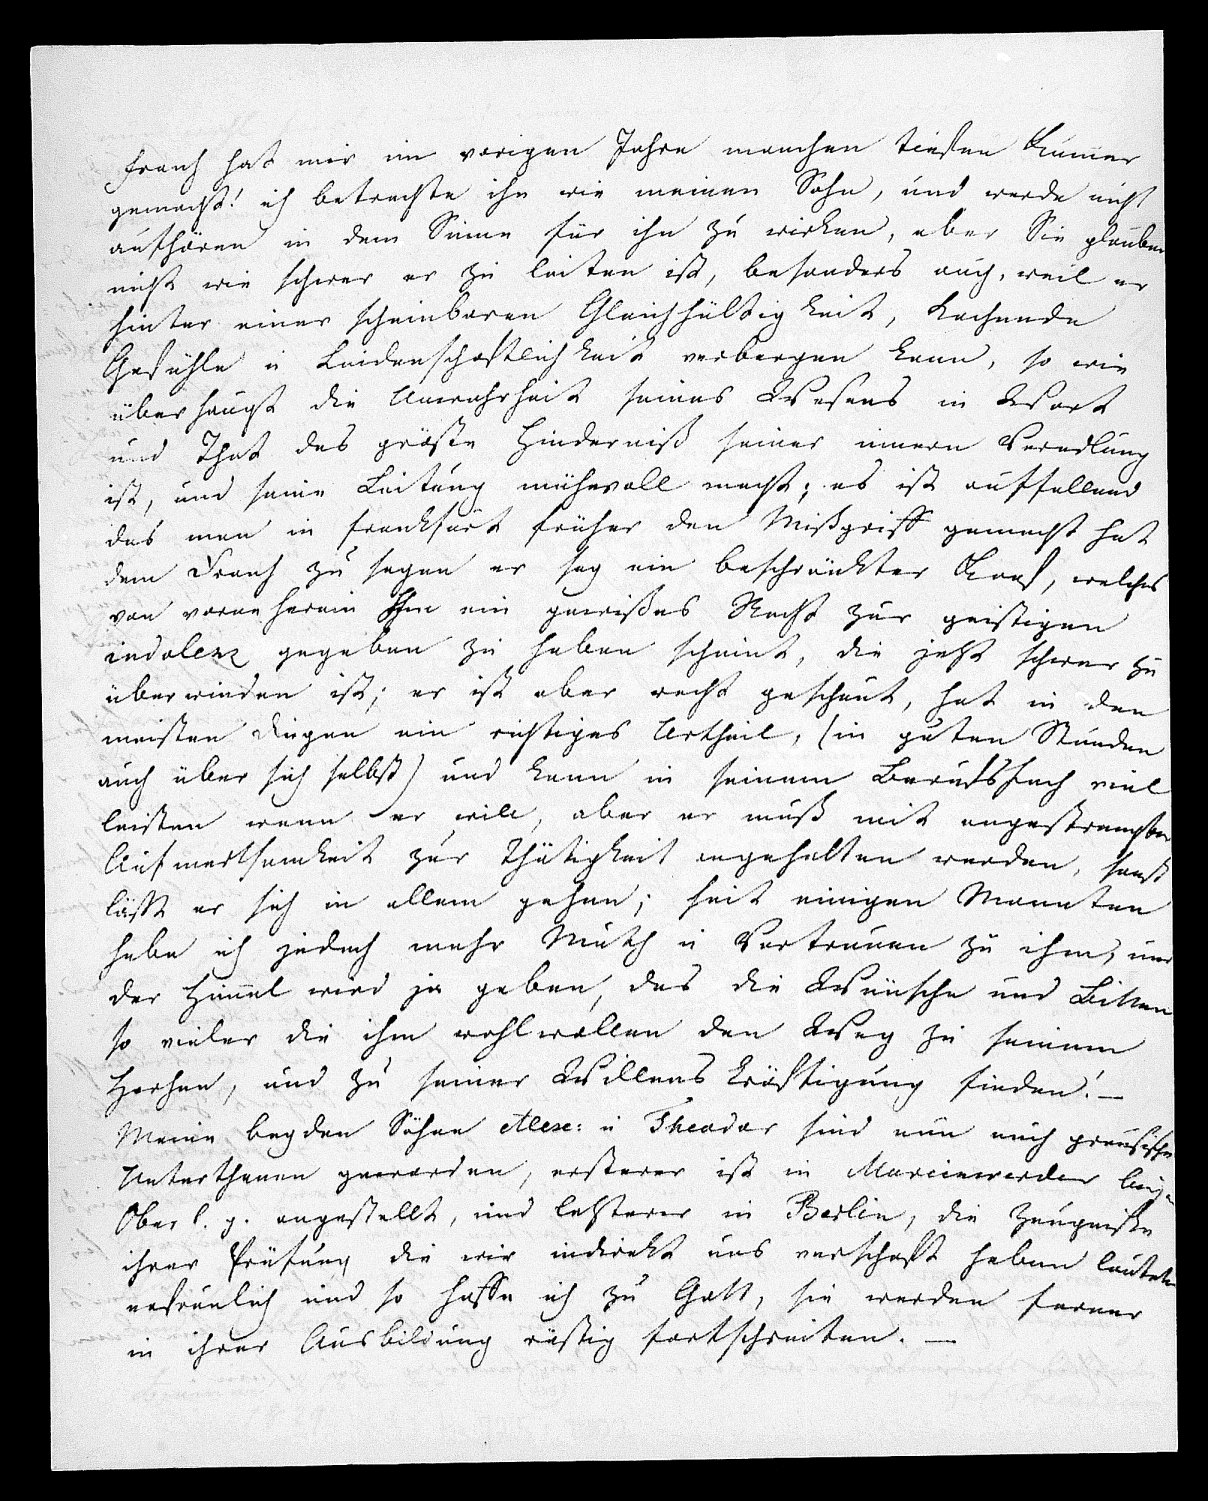 Franz hat mir im vorigen Jahre manchen tiefen Kum̅er
gemacht! ich betrachte ihn wie meinen Sohn, und werde nicht
aufhören in dem Sinne für ihn zu wirken, aber Sie glauben
nicht wie schwer er zu leiten ist, besonders auch, weil er
hinter einer scheinbaren Gleichgültigkeit, kochende
Gefühle u Leidenschaftlichkeit verbergen kann, so wie
überhaupt die Unwahrheit seines Wesens in Wort
und That das größte Hinderniß seiner innern Veredlung
ist, und seine Leitung mühevoll macht; es ist auffallend
das man in Frankfurt früher den Mißgriff gemacht hat
dem Franz zu sagen er sey ein beschränkter Kopf, welches
von vorne herein ihm ein gewißes Recht zur geistigen
indolenz gegeben zu haben scheint, die jetzt schwer zu
überwinden ist; er ist aber recht gescheut, hat in den
meisten Dingen ein richtiges Urtheil, (in guten Stunden
auch über sich selbst) und kann in seinem Berufsfach viel
leisten wenn er will, aber er muß mit angestrengter
Aufmerksamkeit zur Thätigkeit angehalten werden, sonst
läßt er sich in allem gehen; seit einigen Monaten
habe ich jedoch mehr Muth u Vertrauen zu ihm, und
der Him̅el wird ja geben, das die Wünsche und Bitten
so vieler die ihm wohlwollen den Weg zu seinem
Herzen, und zu seiner Willens Kräftigung finden! —
Meine beyden Söhne Alex: u Theodor sind nun auch preusische
Unterthanen geworden, ersterer ist in Marienwerder beym
Ober l. g. angestellt, und letzterer in Berlin, die Zeugniße
ihrer Prüfung die wir indirekt uns verschaft haben lauteten
erfreulich und so hoffe ich zu Gott, sie werden ferner
in ihrer Ausbildung rüstig fortschreiten. —